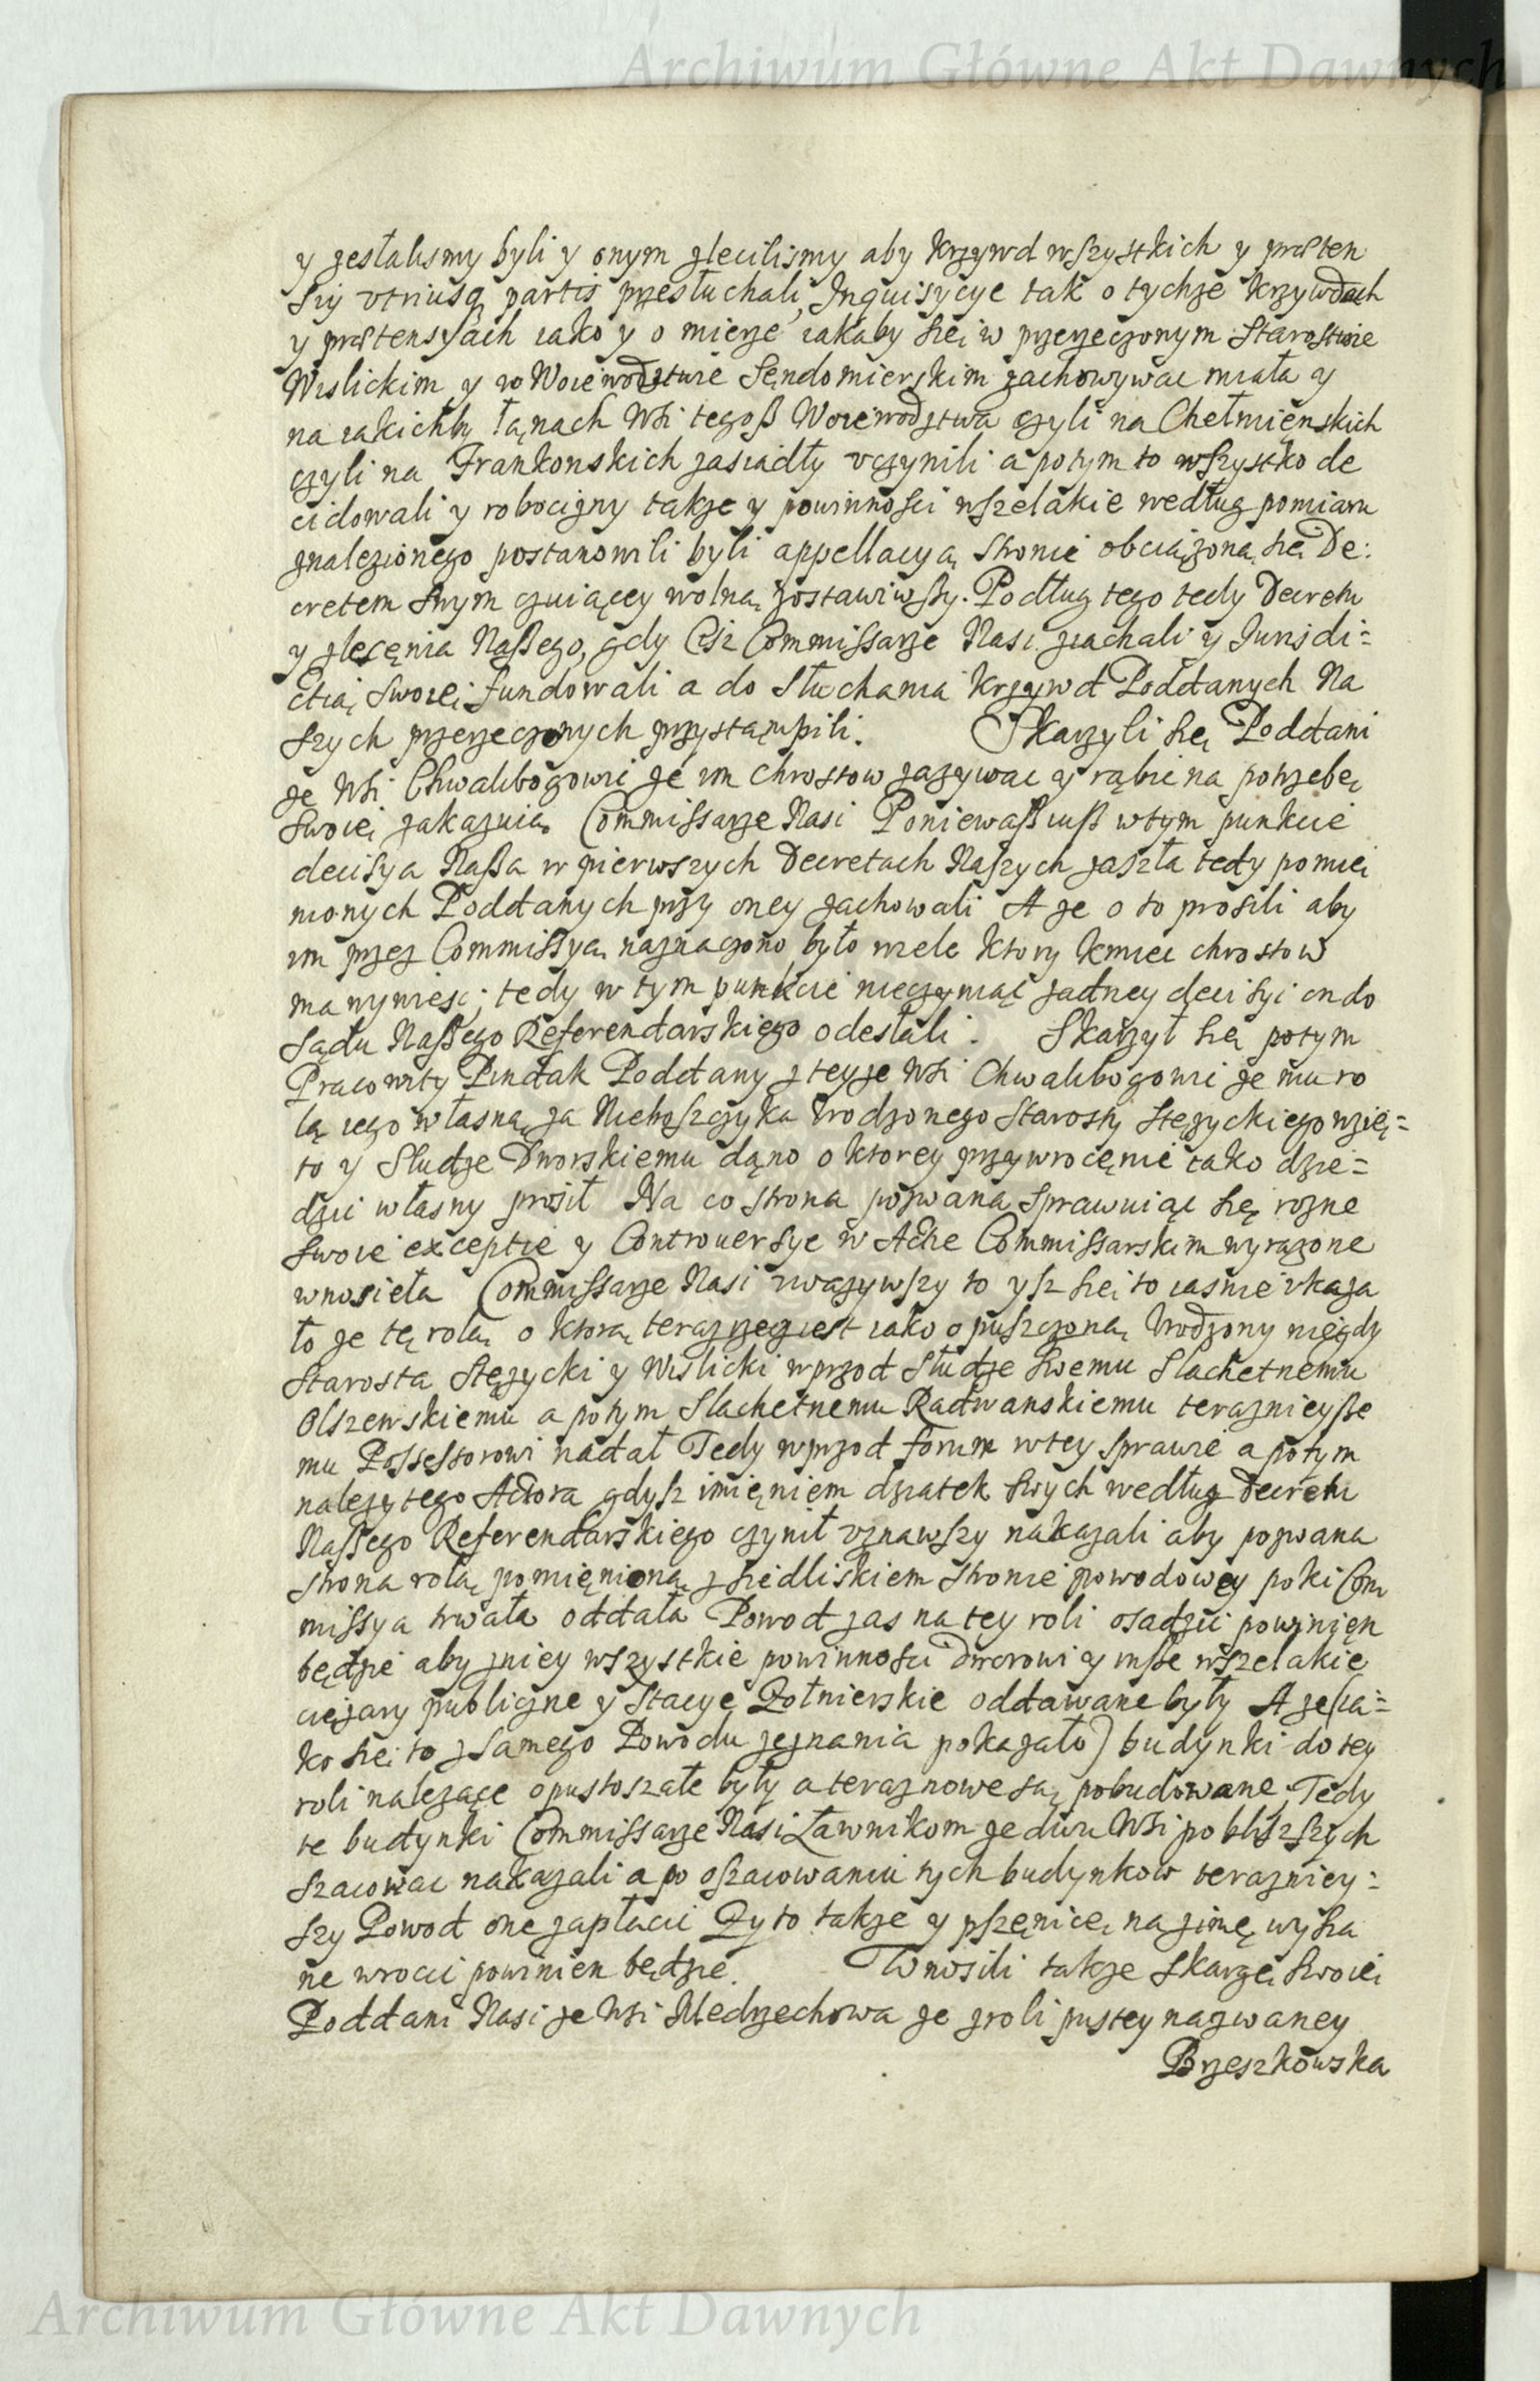 Archiwum Główne Akt Dawnych
y zesłalismy byli y onym zleciliśmy aby krzywd wszystkich y præten
syj utriusq partis przesłuchali, Inquisycye tak o tychże krzywdach
y prætensyach iako y o mierze iakaby się w przerzeczonym Starostwie
Wislickim y w Woiewodztwie Sendomierskim zachowywac miała y
na iakichby łanach Wsi tegoß Woiewodztwa czyli na Chełmięnskich
czyli na Frankonskich zasiadły uczynili a potym to wszystko de
cidowali y robocizny takze y powinnosci wszelakie według pomiaru
znalezionego postanowili byli appellacyą stronie obciążoną się De:
cretem swym czuiącey wolną zostawiwszy. Podług tego tedy Decretu
y zlecęnia Naßego, gdy Ciż Commissarze Nasi ziachali y Jurisdi=
ctią swoię fundowali a do słuchania krzywd Poddanych Na
szych przerzeczonych przystąmpili. Skarzyli się Poddani
ze Wsi Chwalibogowi że im chrostow zazywac y rąbic na potrzebę
swoię zakazuią. Commissarze Nasi Poniewaß iuß w tym punkcie
decisya Naßa w pierwszych Decretach Naszych zaszła tedy pomie
nionych Poddanych przy oney zachowali A ze o to prosili aby
im przez Commissyą naznaczono było wiele ktory kmiec chrostow
ma wyniesc; tedy w tym punkcie nieczyniąc zadney decisyi on do
sądu Naßego Referendarskiego odesłali. Skarzył się potym
Pracowity Pindak Poddany z teyze Wsi Chwalibogowi ze mu ro
lą iego własną za Nieboszczyka Urodzonego Starosty Stęzyckiego wzię=
to y Słudze Dworskiemu dąno o ktorey przywrocęnie iako dzie=
dzic własny prosił Na co strona pozwana sprawuiąc się rozne
swoie exceptie y Controuersye w Akcie Commissarskim wyrazone
wnosieła Commissarze Nasi uwazywszy to ysz się to iasnie ukaza
ło ze tę rolą o ktorą teraz rzecz iest iako opuszczoną Urodzony niegdy
Starosta Stęzycki y Wislicki wprzod słudze swemu Slachetnemu
Olszewskiemu a potym Slachetnemu Radwanskiemu teraznieyße
mu Possessorowi nadał Tedy wprzod forum w tey sprawie a potym
nalezytego Aktora gdysz imięniem dziatek swych według Decretu
Naßego Referendarskiego czynił uznawszy nakazali aby pozwana
strona rolą pomięnioną z siedliskiem stronie powodowey poki Com
missya trwała oddała Powod zas na tęy roli osadzić powinięn
będzie aby zniey wszystkie powinnosci dworowi y inße wszelakie
cięzary publiczne y stacye Zołnierskie oddawane były A ze (ia=
ko się to z samego Powodu zeznania pokazało) budynki do tey
roli nalezące opustoszałe były a teraz nowe są pobudowane. Tedy
te budynki Commissarze Nasi Ławnikom ze dwu Wsi poblizszych
szacowac nakazali a po oszacowaniu tych budynkow terazniey:
szy Powod one zapłacic Zyto takze y pszęnicę na zimę wysia
ne wrocic powinien będzie. Wnosili takze skargę swoię
Poddani Nasi ze Wsi Medrzechowa ze z roli pustey nazwaney
Brzeszkowska
Archiwum Główne Akt Dawnych